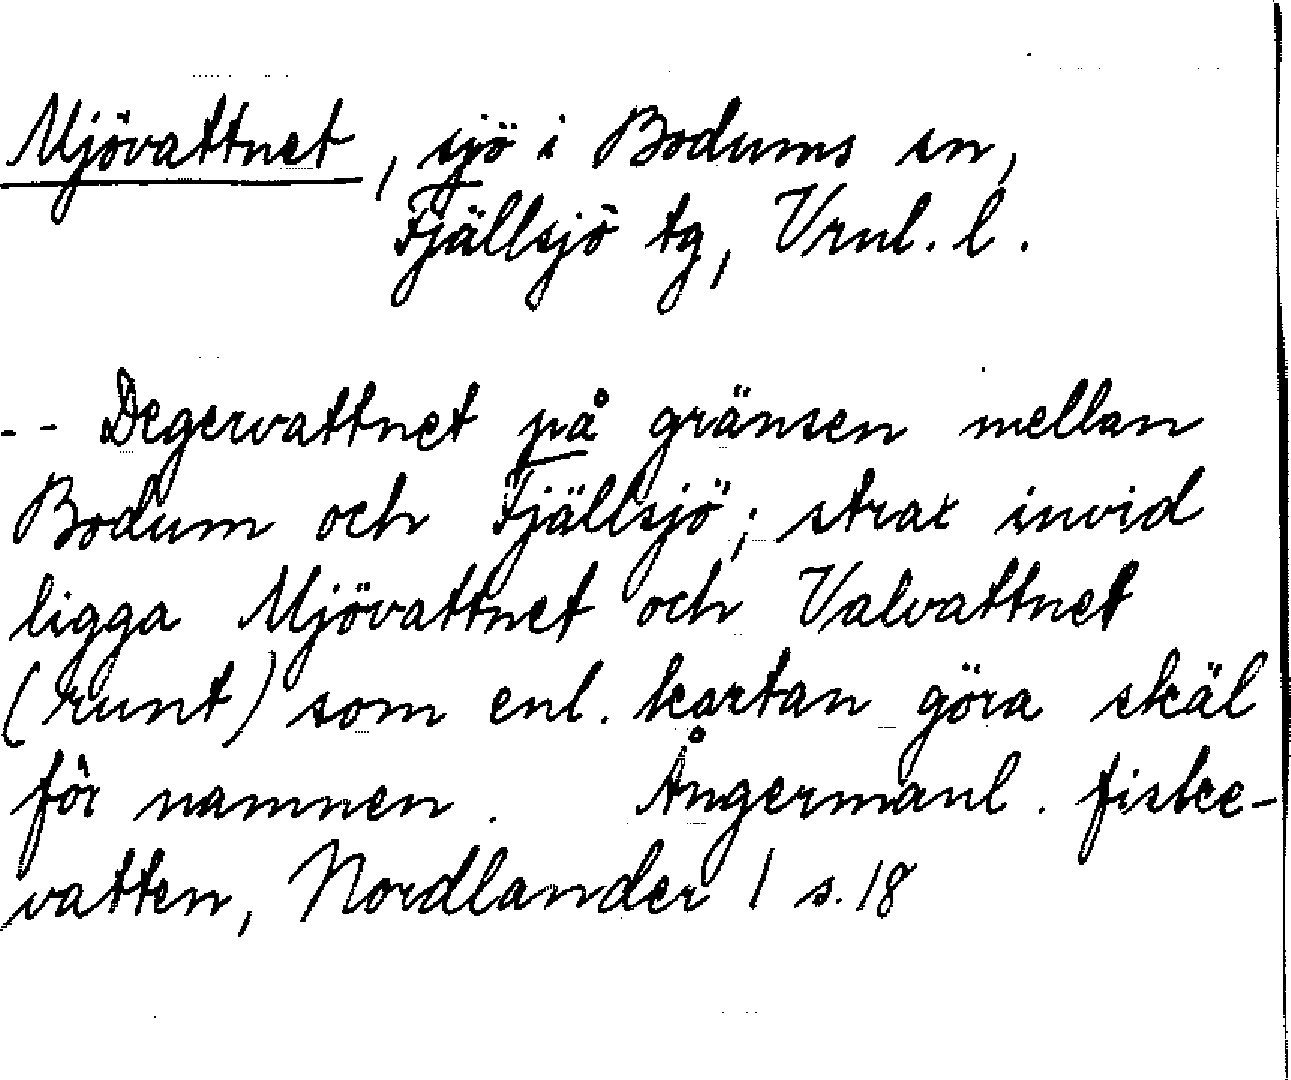 Mjövattnet, sjö i Bodums sn,
Fjällsjö tg, Vrnl. l.
-- Degervattnet på gränsen mellan
Bodum och Fjällsjö; strax invid
ligga Mjövattnet och Valvattnet
(runt) som enl. kartan göra skäl
för namnen. Ångermanl. fiske-
vatten, Nordlander 1 s. 18